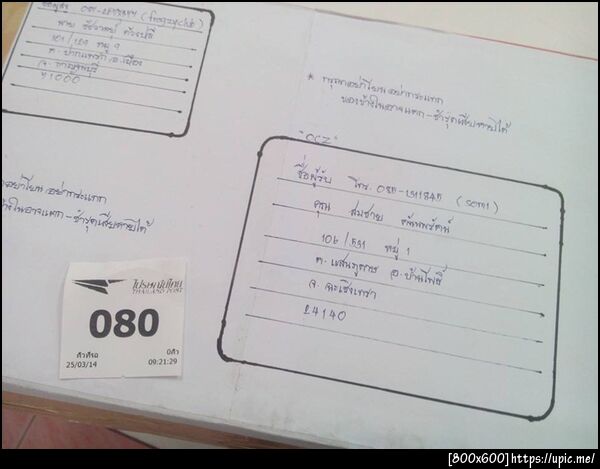 ชื่อผู้ส่ง (frogzyclub)
นาย
101/129 หมู่ 9
ต. ปากแพรก อ. เมือง
จ. กาญจนบุรี
71000
* กรุณาอย่าโยน อย่ากระแทก
ของข้างในอาจแตก - ชำรุดเสียหายได้
"CCZ"
ชื่อผู้รับ โทร. (som1)
คุณ สมชาย
106/591 หมู่ 1
ต. แสนภูดาษ อ. บ้านโพธิ์
จ. ฉะเชิงเทรา
24140
อย่าโยน อย่ากระแทก
ข้างในอาจแตก - ชำรุดเสียหายได้
ไปรษณีย์ไทย
THAILAND POST
080
คิวที่รอ 0คิว
25/03/14 09:21:29
[800x600] https://upic.me/